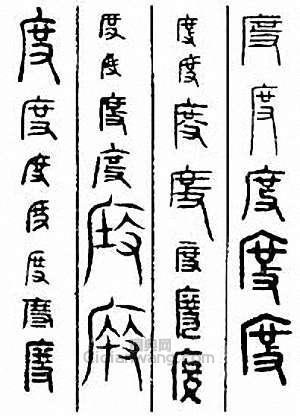 度度度度度
度度度度度度度
度度度度度度
度度度度度度度
词典网
Cidianwang.com